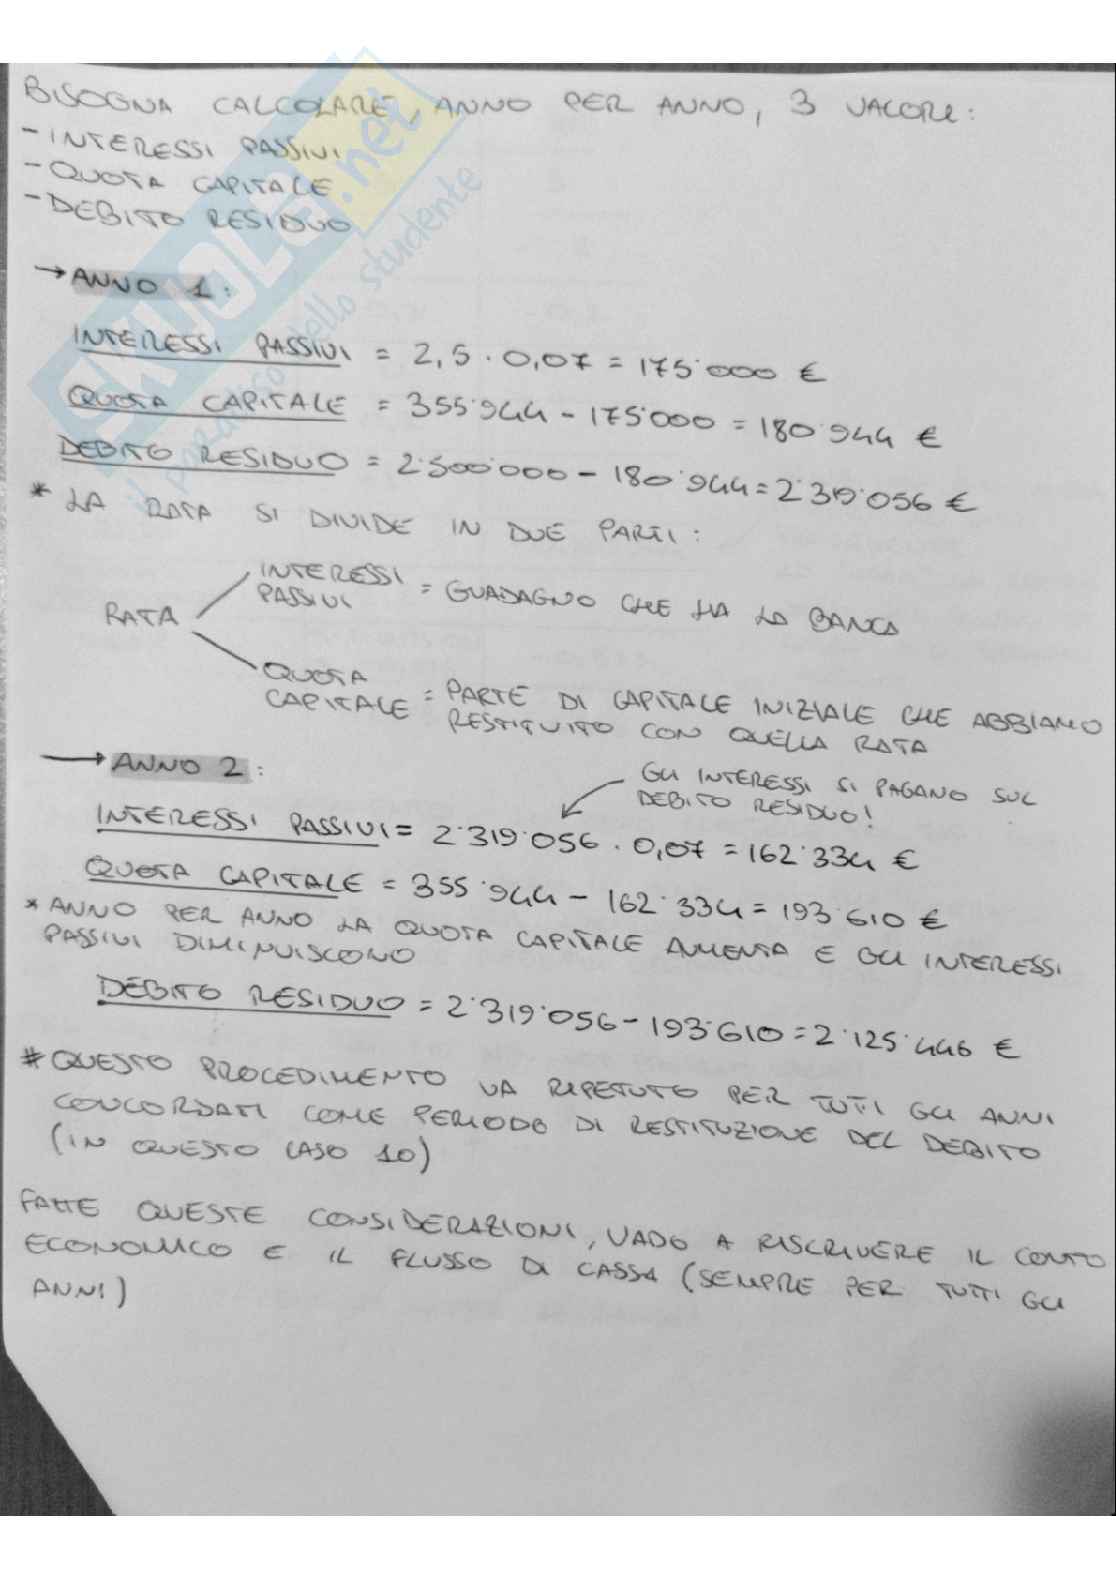 BISOGNA CALCOLARE, ANNO PER ANNO, 3 VALORI:
- INTERESSI PASSIVI
- QUOTA CAPITALE
- DEBITO RESIDUO
→ ANNO 1:
INTERESSI PASSIVI = 2,5 · 0,07 = 175'000 €
QUOTA CAPITALE = 355'944 - 175'000 = 180'944 €
DEBITO RESIDUO = 2'500'000 - 180'944 = 2'319'056 €
* LA RATA SI DIVIDE IN DUE PARTI:
RATA
INTERESSI PASSIVI = GUADAGNO CHE HA LA BANCA
QUOTA CAPITALE = PARTE DI CAPITALE INIZIALE CHE ABBIAMO
RESTITUITO CON QUELLA RATA
→ ANNO 2:
GLI INTERESSI SI PAGANO SUL
DEBITO RESIDUO!
INTERESSI PASSIVI = 2'319'056 · 0,07 = 162'334 €
QUOTA CAPITALE = 355'944 - 162'334 = 193'610 €
* ANNO PER ANNO LA QUOTA CAPITALE AUMENTA E GLI INTERESSI
PASSIVI DIMINUISCONO
DEBITO RESIDUO = 2'319'056 - 193'610 = 2'125'446 €
* QUESTO PROCEDIMENTO VA RIPETUTO PER TUTTI GLI ANNI
CONCORDATI COME PERIODO DI RESTITUZIONE DEL DEBITO
(IN QUESTO CASO 10)
FATTE QUESTE CONSIDERAZIONI, VADO A RISCRIVERE IL CONTO
ECONOMICO E IL FLUSSO DI CASSA (SEMPRE PER TUTTI GLI
ANNI)
SKUOLA.net
il paradiso dello studente